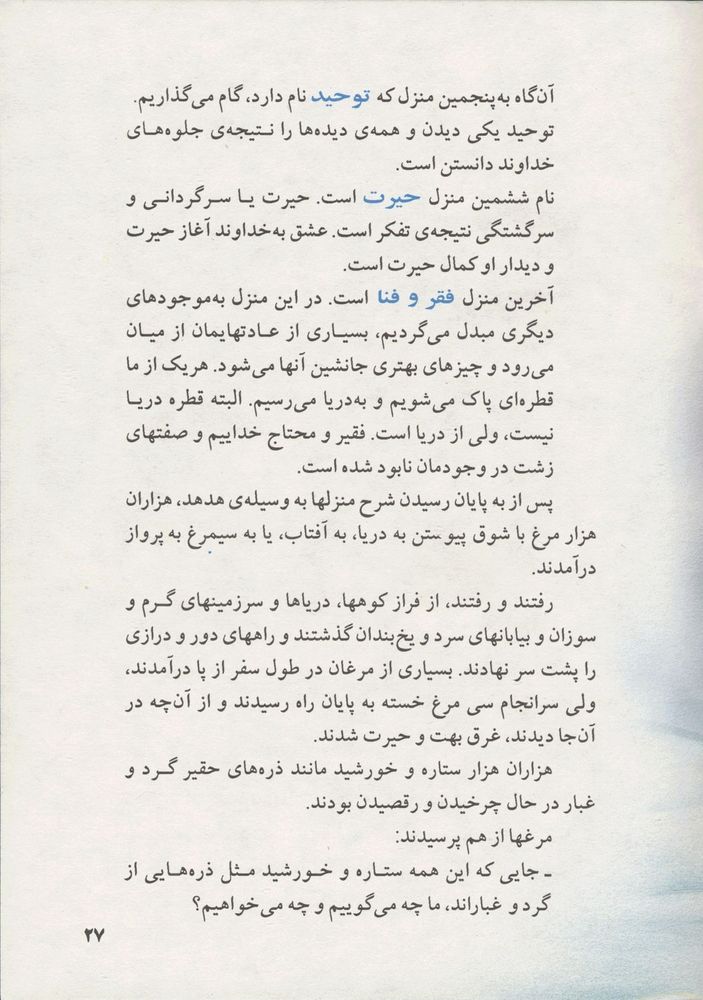 آن‌گاه به‌پنجمین منزل که توحید نام دارد، گام می‌گذاریم.
توحید یکی دیدن و همه‌ی دیده‌ها را نـتیجه‌ی جلوه‌هـای
خداوند دانستن است.
نام ششمین منزل حیرت است. حیرت یـا سـرگردانـی و
سرگشتگی نتیجه‌ی تفکر است. عشق به‌خداوند آغاز حیرت
و دیدار او کمال حیرت است.
آخرین منزل فقر و فنا است. در این منزل به‌موجودهای
دیگری مبدل می‌گردیم، بسیاری از عـادتهایمان از میـان
می‌رود و چیزهای بهتری جانشین آنها می‌شود. هریک از ما
قطره‌ای پاک می‌شویم و به‌دریا می‌رسیم. البته قطره دریـا
نیست، ولی از دریا است. فقیر و محتاج خداییم و صفتهای
زشت در وجودمان نابود شده است.
پس از به پایان رسیدن شرح منزلها به وسیله‌ی هدهد، هزاران
هزار مرغ با شوق پیوستن به دریا، به آفتاب، یا به سیمرغ به پرواز
درآمدند.
رفتند و رفتند، از فراز کوهها، دریاها و سرزمینهای گـرم و
سوزان و بیابانهای سرد و یخ‌بندان گذشتند و راههای دور و درازی
را پشت سر نهادند. بسیاری از مرغان در طول سفر از پا درآمدند،
ولی سرانجام سی مرغ خسته به پایان راه رسیدند و از آن‌چه در
آن‌جا دیدند، غرق بهت و حیرت شدند.
هزاران هزار ستاره و خورشید مانند ذره‌های حقیر گـرد و
غبار در حال چرخیدن و رقصیدن بودند.
مرغها از هم پرسیدند:
ـ جایی که این همه ستاره و خـورشید مـثل ذره‌هـایی از
گرد و غباراند، ما چه می‌گوییم و چه می‌خواهیم؟
۲۷